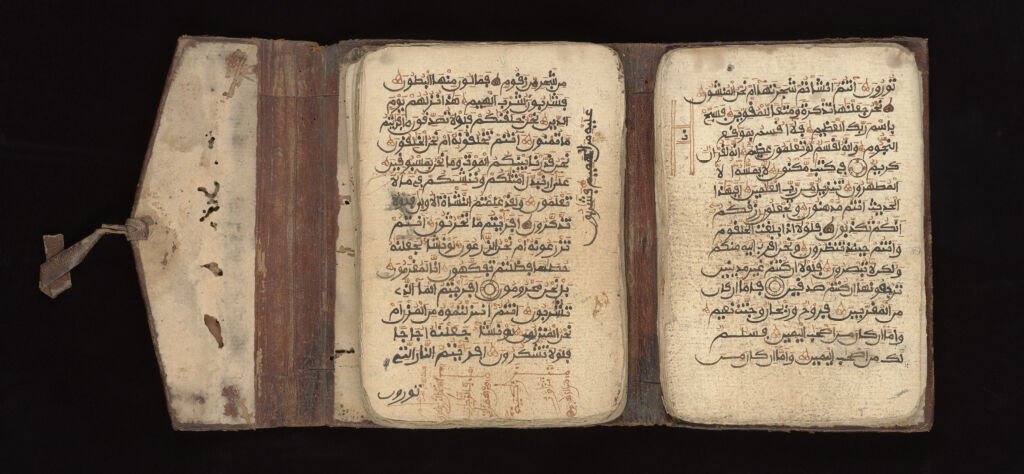 من شجر من زقوم فمالون منها البطون
فشربون شرب الهيم هذا نزلهم يوم
الدين نحن خلقنكم فلولا تصدقون افريتم
ما تمنون انتم تخلقونه ام نحن الخلقون
نحن قدرنا بينكم الموت وما نحن بمسبوقين
على ان نبدل امثلكم وننشئكم في ما لا
تعلمون ولقد علمتم النشاة الاولى فلولا
تذكرون افريتم ما تحرثون انتم
تزرعونه ام نحن الزرعون لو نشا لجعلنه
حطما فظلتم تفكهون انا لمغرمون
بل نحن محرومون افريتم الما الذي
تشربون انتم انزلتموه من المزن ام
نحن المنزلون لو نشا جعلنه اجاجا
فلولا تشكرون افريتم النار التي
تورون
عليه من الحميم فشربون
تورون انتم انشاتم شجرتها ام نحن المنشون
نحن جعلنها تذكرة ومتعا للمقوين فسبح
باسم ربك العظيم فلا اقسم بموقع
النجوم وانه لقسم لو تعلمون عظيم انه لقران
كريم في كتب مكنون لا يمسه الا
المطهرون تنزيل من رب العلمين افبهذا
الحديث انتم مدهنون وتجعلون رزقكم
انكم تكذبون فلولا اذا بلغت الحلقوم
وانتم حينئذ تنظرون ونحن اقرب اليه منكم
ولكن لا تبصرون فلولا ان كنتم غير مدينين
ترجعونها ان كنتم صدقين فاما ان كان
من المقربين فروح وريحان وجنت نعيم
واما ان كان من اصحب اليمين فسلم
لك من اصحب اليمين واما ان كان من